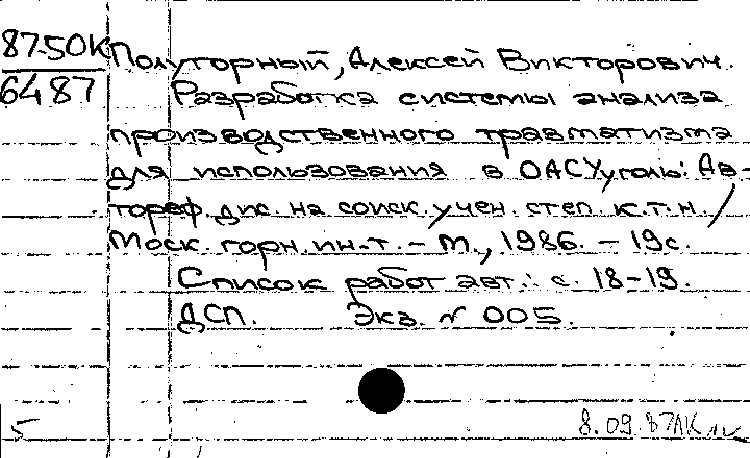 87-50К Полуторный, Алексей Викторович.
6487 Разработка системы анализа
производственного травматизма
для использования в ОАСУуголь: Ав-
тореф. дис. на соиск. учен. степ. к.т.н. /
Моск. горн. ин-т. - М., 1986. - 19с.
Список работ авт.: с. 18-19.
ДСП. Экз. № 005.
5 8.09.87